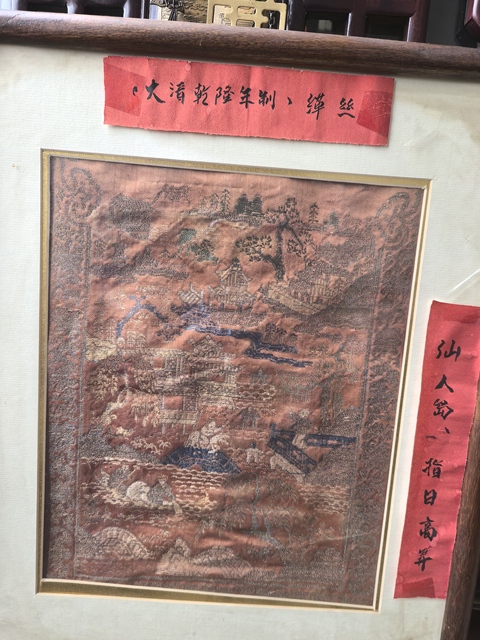 大清乾隆年制、緙丝
仙人島、指日高昇